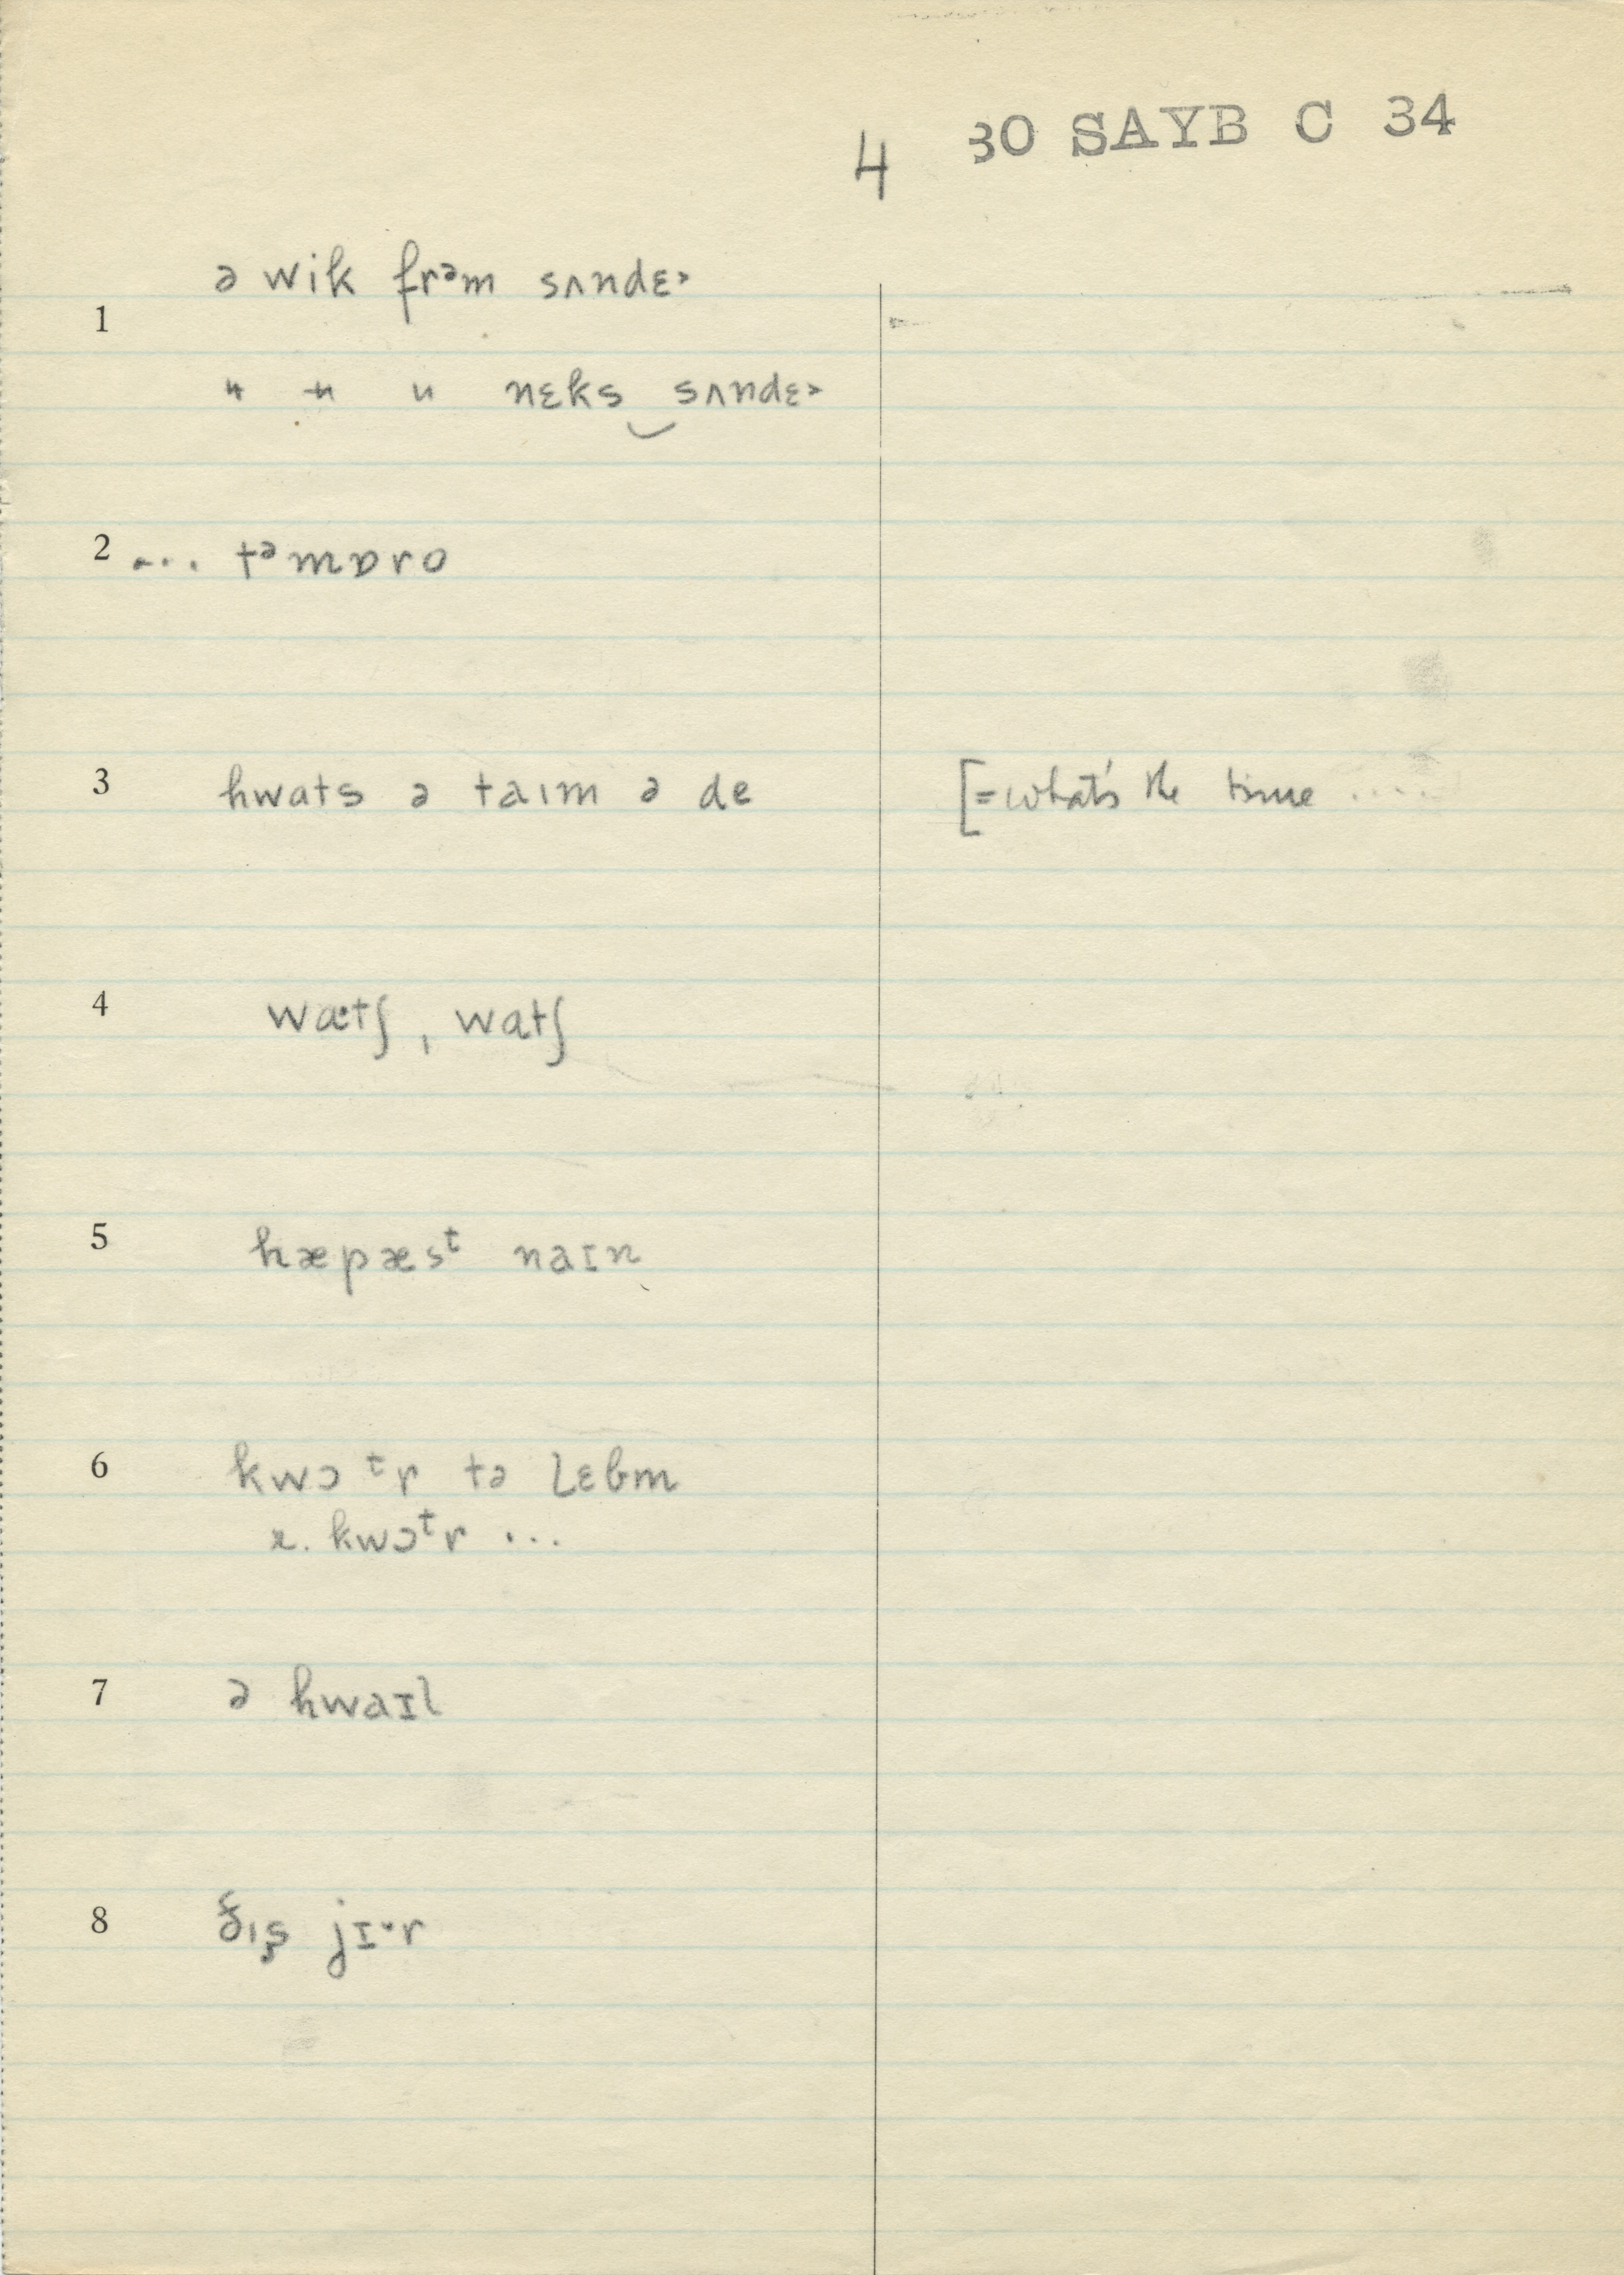 4 30 SAYB C 34
1 ə wik frᵊm sʌndɛ˃
" " " nɛks‿sʌndɛ˃
2 ... tᵊmɒro
3 hwats ə taɪm ə de [=what's the time .....
4 wæ·tʃ, watʃ
5 hæpæsᵗ naɪn
6 kwɔᵗr tə lɛbm
r. kwɔᵗr ...
7 ə hwaɪl
8 ðɪʂ jɪ·r